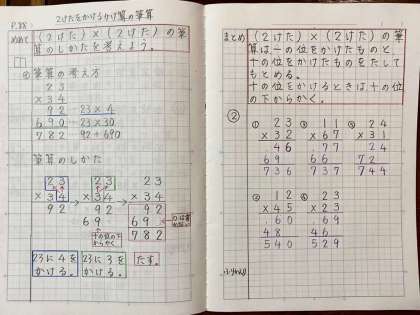 P.88
2けたをかけるかけ算の筆算
めあて
(2けた)×(2けた)の筆
算のしかたを考えよう。
筆算の考え方
23
×34
92 23×4
690 23×30
782 92+690
筆算のしかた
23 23 23
×34 → ×34 → ×34
92 92 92
69 69
782
十の位の下
からかく
23に4を
かける。
23に3を
かける。
たす。
まとめ
(2けた)×(2けた)の筆
算は、一の位をかけたものと、
十の位をかけたものをたして
もとめる。
十の位をかけるときは、十の位
の下からかく。
②
① 23 ② 11 ③ 24
×32 ×67 ×31
46 77 24
69 66 72
736 737 744
④ 12 ⑤ 23
×45 ×23
60 69
48 46
540 529